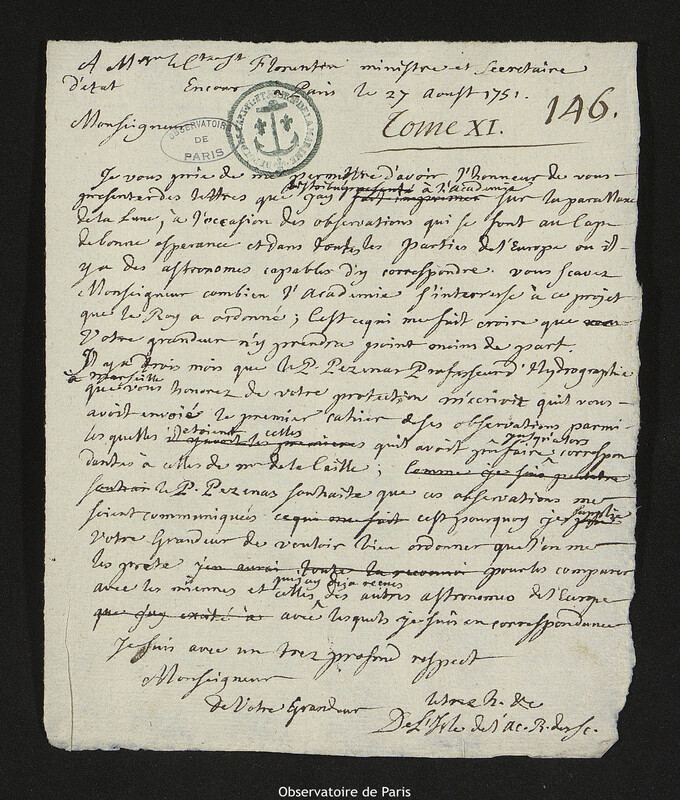 A Mgr le Ctte St Florentin ministre et Secretaire
d'etat Encour a Paris le 27 Aoust 1751.
146.
Tome XI.
Monseigneur
OBSERVATOIRE
DE
PARIS
Je vous prie de me permettre d'avoir l'honneur de vous
presenter des lettres que j'ay distribué presenté à l'Academie fait imprimer sur la parallaxe
de la Lune, a l'occasion des observations qui se font au Cap
de bonne esperance et dans toutes les Parties de l'Europe ou il
y a des astronomes capables d'y correspondre. vous scavez
Monseigneur combien l'Academie s'interresse à ce projet
que le Roy a ordonné ; C'est ce qui me fait croire que
Votre grandeur n'y prendra point moins de part.
Il y a trois mois que le P. Pezenas Professeur d'Hydrographie
à Marseille
que vous honorez de votre protection m'ecrivoit qu'il vous
avoit envoié le premier cahier de ses observations parmi
lesquelles etoient celles qu'il avoit pû faire jusqu'alors correspon
dantes à celles de mr de la Caille ; comme je suis
le P. Pezenas souhaite que ces observations me
soient communiquées ce qui me fait c'est pourquoy je supplie
Votre Grandeur de vouloir bien ordonner que l'on me
les prete j'en aurai toute la pour les comparer
avec les miennes et celles que j'ay deja recues des autres astronomes de l'Europe
que j'ay excité à avec lesquels je suis en correspondance
Je suis avec un trez profond respect
Monseigneur
De Votre Grandeur
Le tres h. &c
De L'Isle de l'ac. R. des sc.
Observatoire de Paris